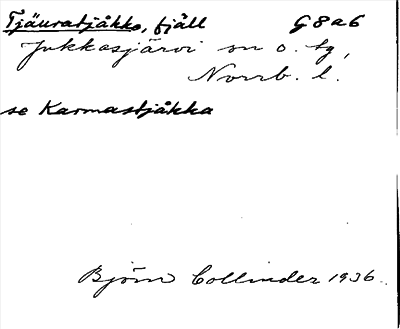 Tjäuratjåkko, fjäll G8a6
Jukkasjärvi sn o. tg,
Norrb. l.
se Karmastjåkka
Björn Collinder 1936